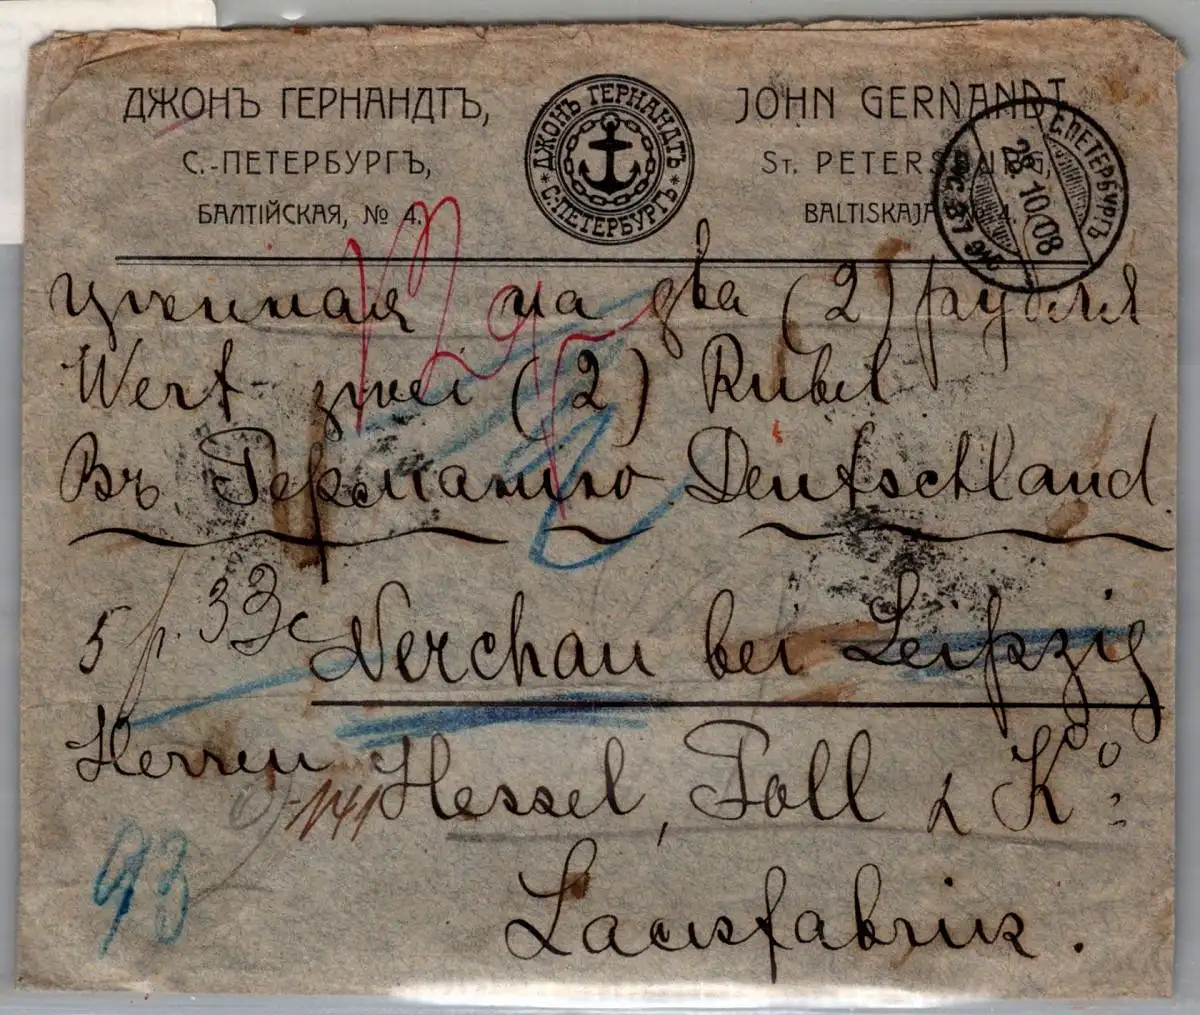 ДЖОНЪ ГЕРНАНДТЪ,
С.-ПЕТЕРБУРГЪ,
БАЛТІЙСКАЯ, № 4.
* ДЖОНЪ ГЕРНАНДТЪ *
С.ПЕТЕРБУРГЪ
JOHN GERNANDT,
ST. PETERSBURG,
BALTISKAJA № 4.
С.ПЕТЕРБУРГЪ
28.10.08
цѣнная на два (2) рубля
Wert zwei (2) Rubel
Въ Германію Deutschland
5 р. 33
Nerchau bei Leipzig
Herren Hessel, Foll & Ko:
141
Lackfabrik.
93